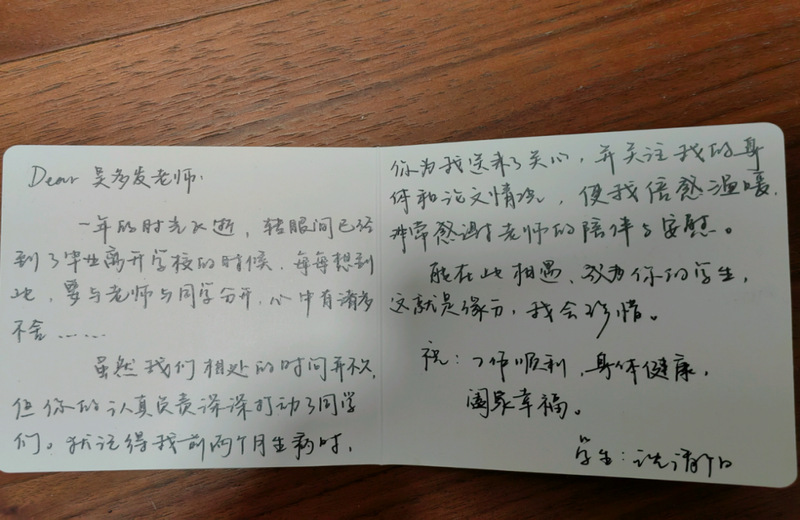 Dear 吴多发老师:
一年的时光飞逝，转眼间已经
到了毕业离开学校的时候，每每想到
此，要与老师与同学分开，心中有诸多
不舍……
虽然我们相处的时间并不久，
但你的认真负责深深打动了同学
们。犹记得我前两个月生病时，
你为我送来了关心，并关注我的身
体和论文情况，使我倍感温暖，
非常感谢老师的陪伴与安慰。
能在此相遇、成为你的学生，
这就是缘分，我会珍惜。
祝：工作顺利，身体健康，
阖家幸福。
学生：